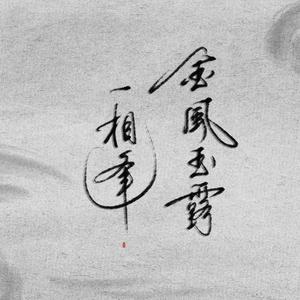 金風玉露
一相逢